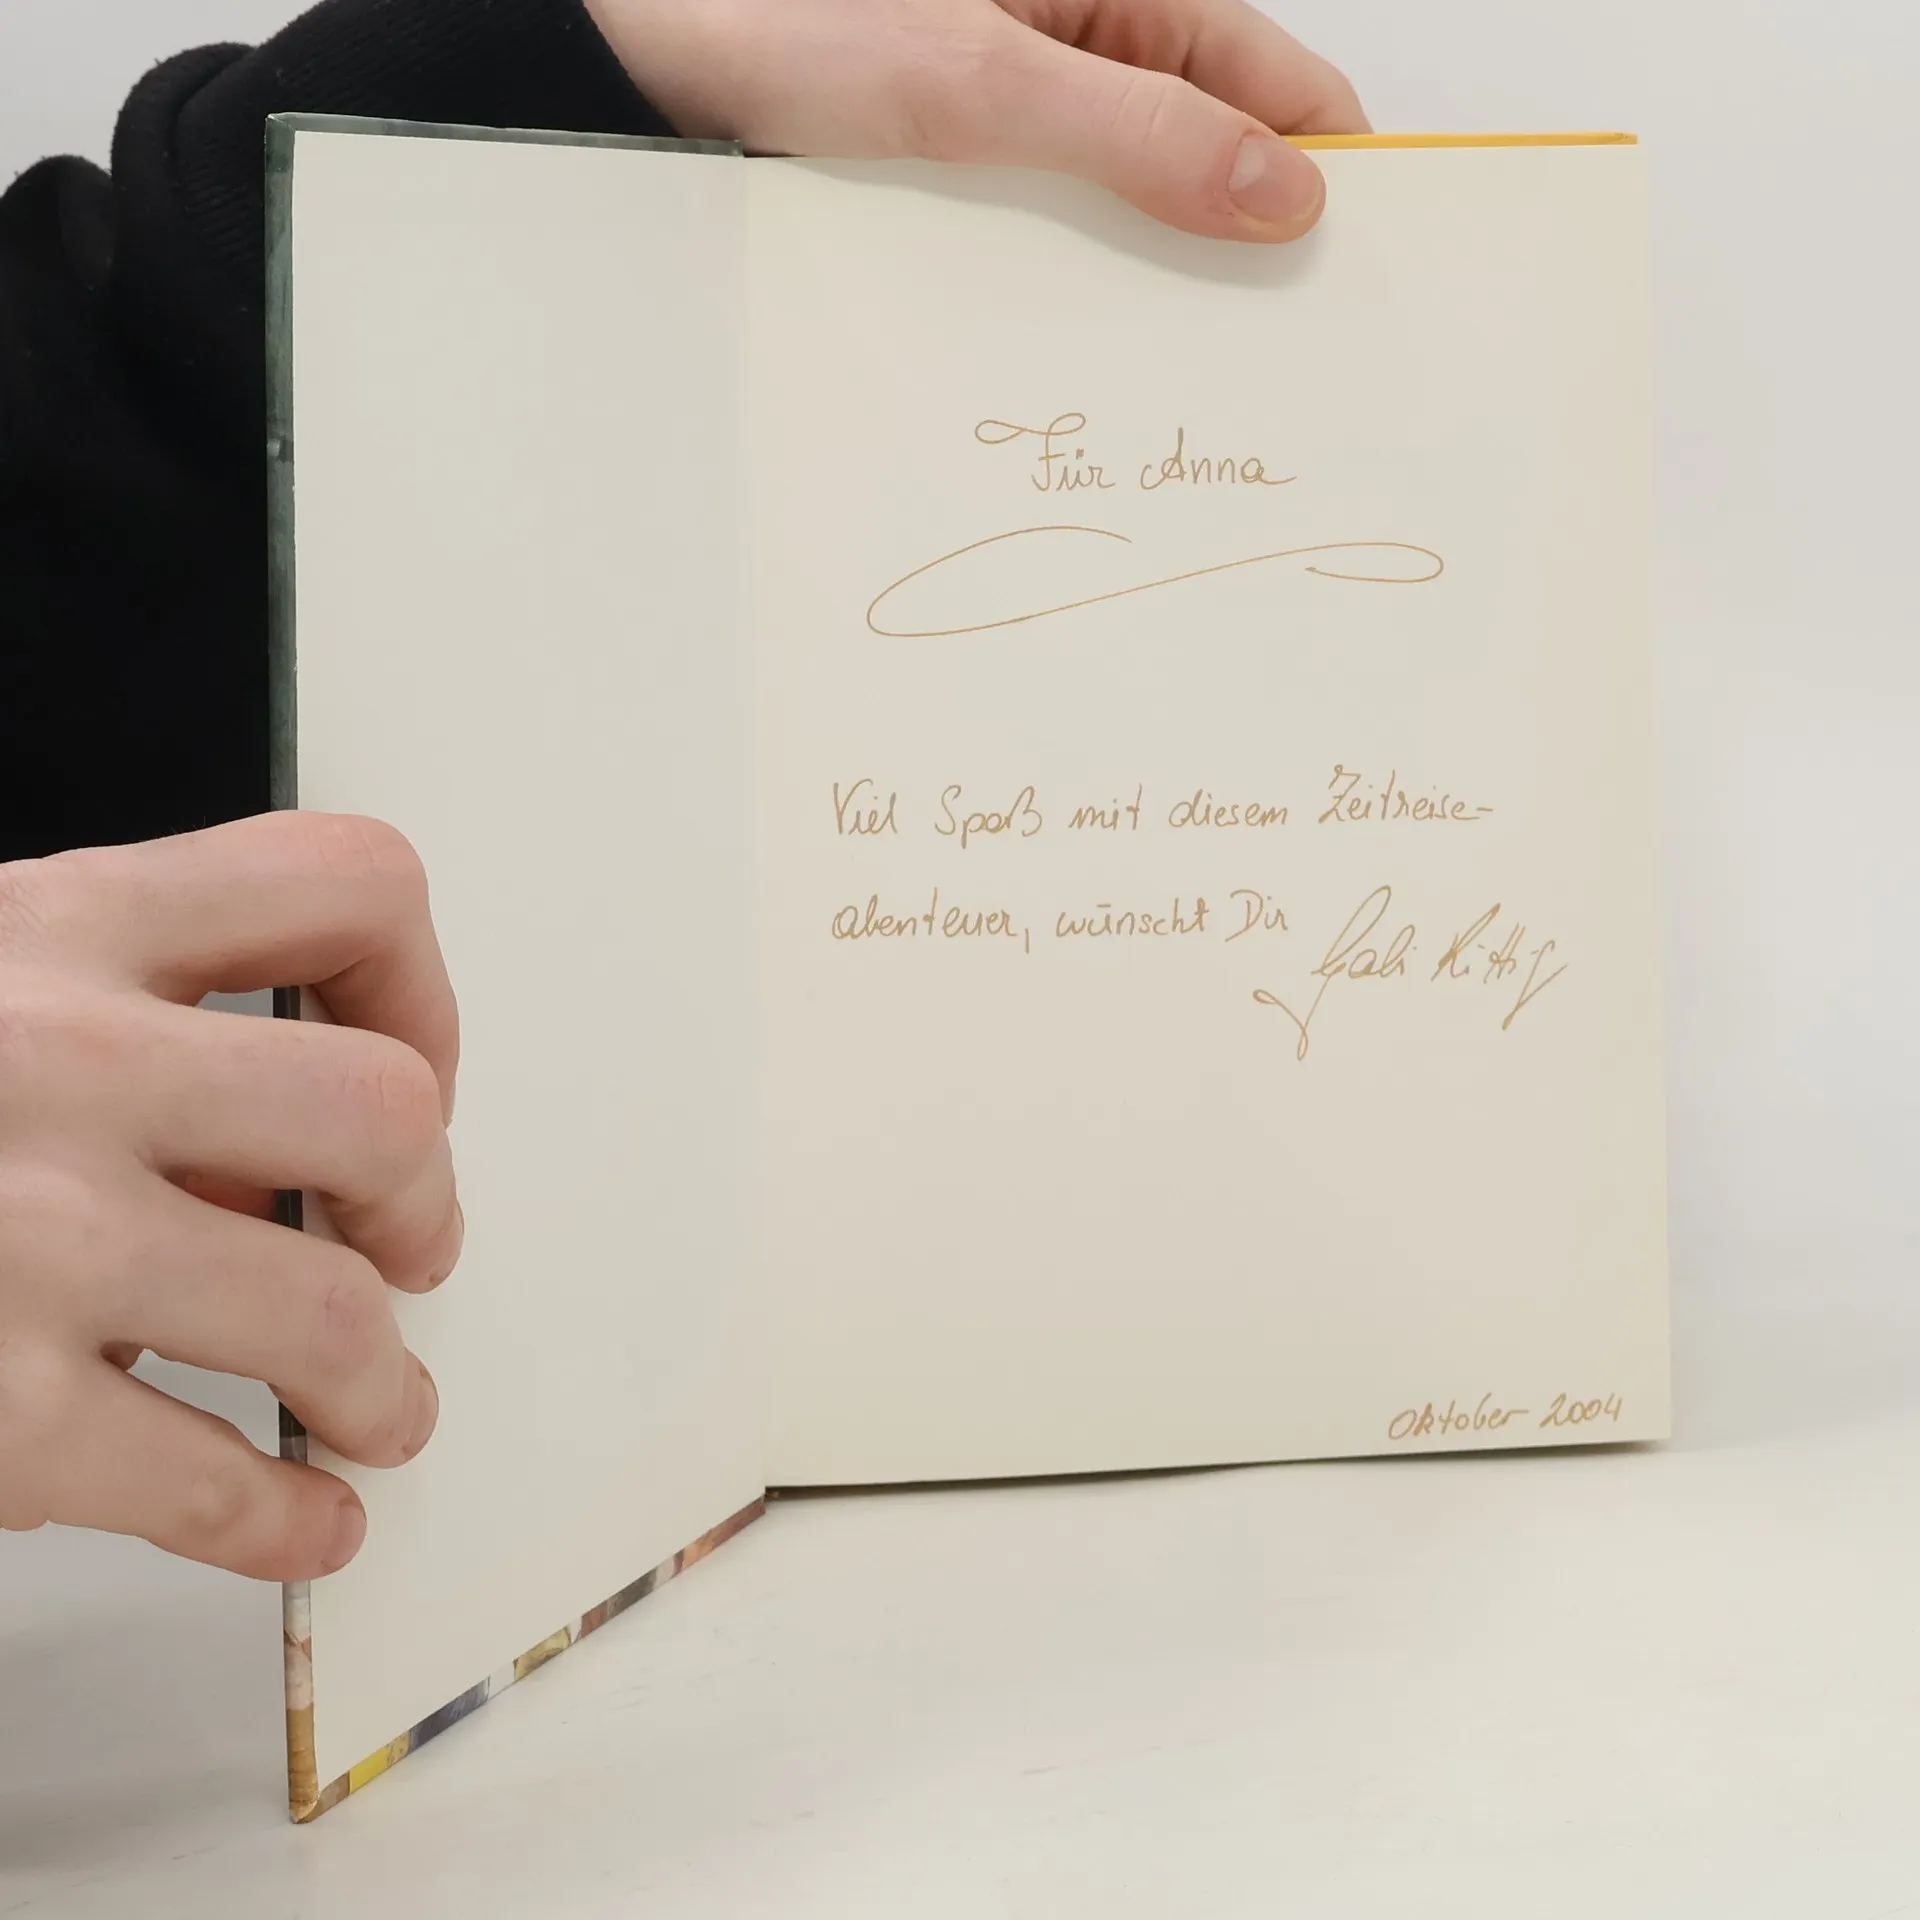 Für Anna
Viel Spaß mit diesem Zeitreise-
abenteuer, wünscht Dir Gabi Rittig
Oktober 2004